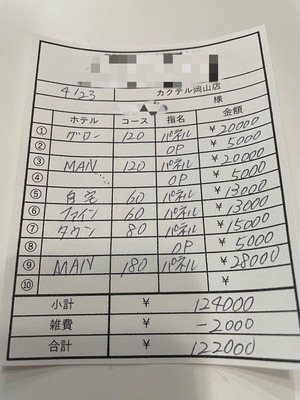 4/23 カクテル岡山店
様
ホテル コース 指名 金額
① グロー 120 パネル ¥20000
② OP ¥5000
③ MAN 120 パネル ¥20000
④ OP ¥5000
⑤ 自宅 60 パネル ¥13000
⑥ ファイン 60 パネル ¥13000
⑦ タウン 80 パネル ¥15000
⑧ OP ¥5000
⑨ MAN 180 パネル ¥28000
⑩ ¥
小計 ¥ 124000
雑費 ¥ -2000
合計 ¥ 122000